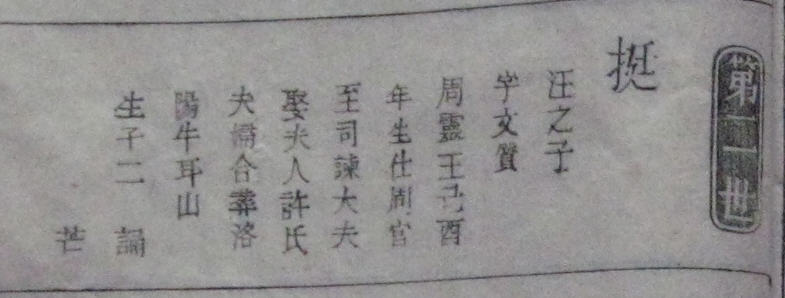 第二世
挺
汪之子
字文質
周靈王己酉
年生仕周官
至司諫大夫
娶夫人許氏
夫婦合葬洛
陽牛耳山
生子二　誦
芒